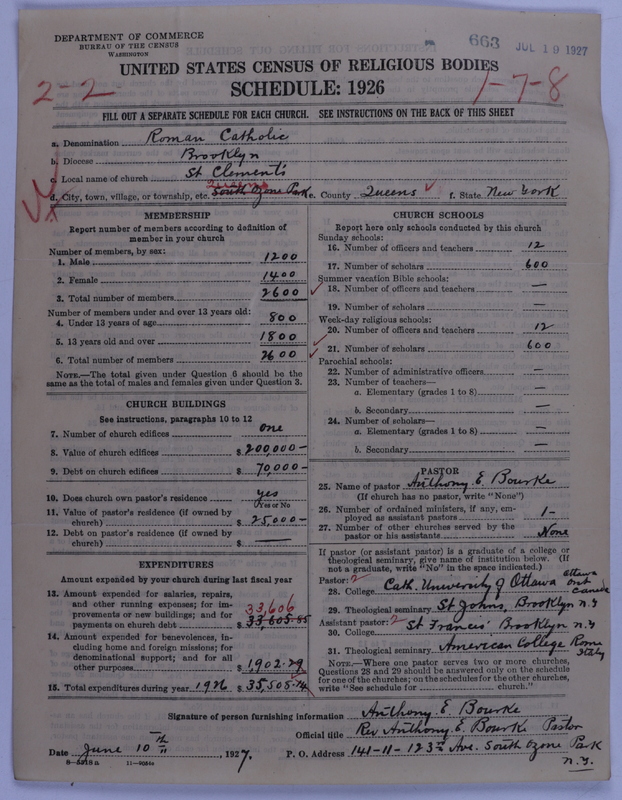 DEPARTMENT OF COMMERCE
BUREAU OF THE CENSUS
WASHINGTON
663 JUL 19 1927
UNITED STATES CENSUS OF RELIGIOUS BODIES
SCHEDULE: 1926
2-2
1-7-8
FILL OUT A SEPARATE SCHEDULE FOR EACH CHURCH. SEE INSTRUCTIONS ON THE BACK OF THIS SHEET
a. Denomination Roman Catholic
b. Diocese Brooklyn
c. Local name of church St Clement's
d. City, town, village, or township, etc. South Ozone Park e. County Queens f. State New York
MEMBERSHIP
Report number of members according to definition of
member in your church
Number of members, by sex:
1. Male 1200
2. Female 1400
3. Total number of members 2600
Number of members under and over 13 years old:
4. Under 13 years of age 800
5. 13 years old and over 1800
6. Total number of members 2600
NOTE.—The total given under Question 6 should be the
same as the total of males and females given under Question 3.
CHURCH BUILDINGS
See instructions, paragraphs 10 to 12
7. Number of church edifices one
8. Value of church edifices $ 200,000-
9. Debt on church edifices $ 70,000-
10. Does church own pastor's residence yes
Yes or No
11. Value of pastor's residence (if owned by
church) $ 25,000-
12. Debt on pastor's residence (if owned by
church) $ —
EXPENDITURES
Amount expended by your church during last fiscal year
13. Amount expended for salaries, repairs,
and other running expenses; for im-
provements or new buildings; and for
payments on church debt $ 33,605.85
33,606
14. Amount expended for benevolences, in-
cluding home and foreign missions; for
denominational support; and for all
other purposes $ 1902.29
15. Total expenditures during year 1926 $ 35,505.14
CHURCH SCHOOLS
Report here only schools conducted by this church
Sunday schools:
16. Number of officers and teachers 12
17. Number of scholars 600
Summer vacation Bible schools:
18. Number of officers and teachers —
19. Number of scholars —
Week-day religious schools:
20. Number of officers and teachers 12
21. Number of scholars 600
Parochial schools:
22. Number of administrative officers —
23. Number of teachers—
a. Elementary (grades 1 to 8) —
b. Secondary —
24. Number of scholars—
a. Elementary (grades 1 to 8) —
b. Secondary —
PASTOR
25. Name of pastor Anthony E. Bourke
(If church has no pastor, write "None")
26. Number of ordained ministers, if any, em-
ployed as assistant pastors 1-
27. Number of other churches served by the
pastor or his assistants None
If pastor (or assistant pastor) is a graduate of a college or
theological seminary, give name of institution below. (If
not a graduate, write "No" in the space indicated.)
Pastor: 2
28. College Cath. University of Ottawa Ottawa Ont Canada
29. Theological seminary St Johns, Brooklyn N.Y
Assistant pastor: 2
30. College St Francis' Brooklyn N.Y
31. Theological seminary American College Rome Italy
NOTE.—Where one pastor serves two or more churches,
Questions 28 and 29 should be answered only on the schedule
for one of the churches; on the schedules for the other churches,
write "See schedule for ........ church."
Signature of person furnishing information Anthony E. Bourke
Official title Rev Anthony E. Bourke Pastor
Date June 10th, 1927. P. O. Address 141-11-123rd Ave. South Ozone Park
N.Y.